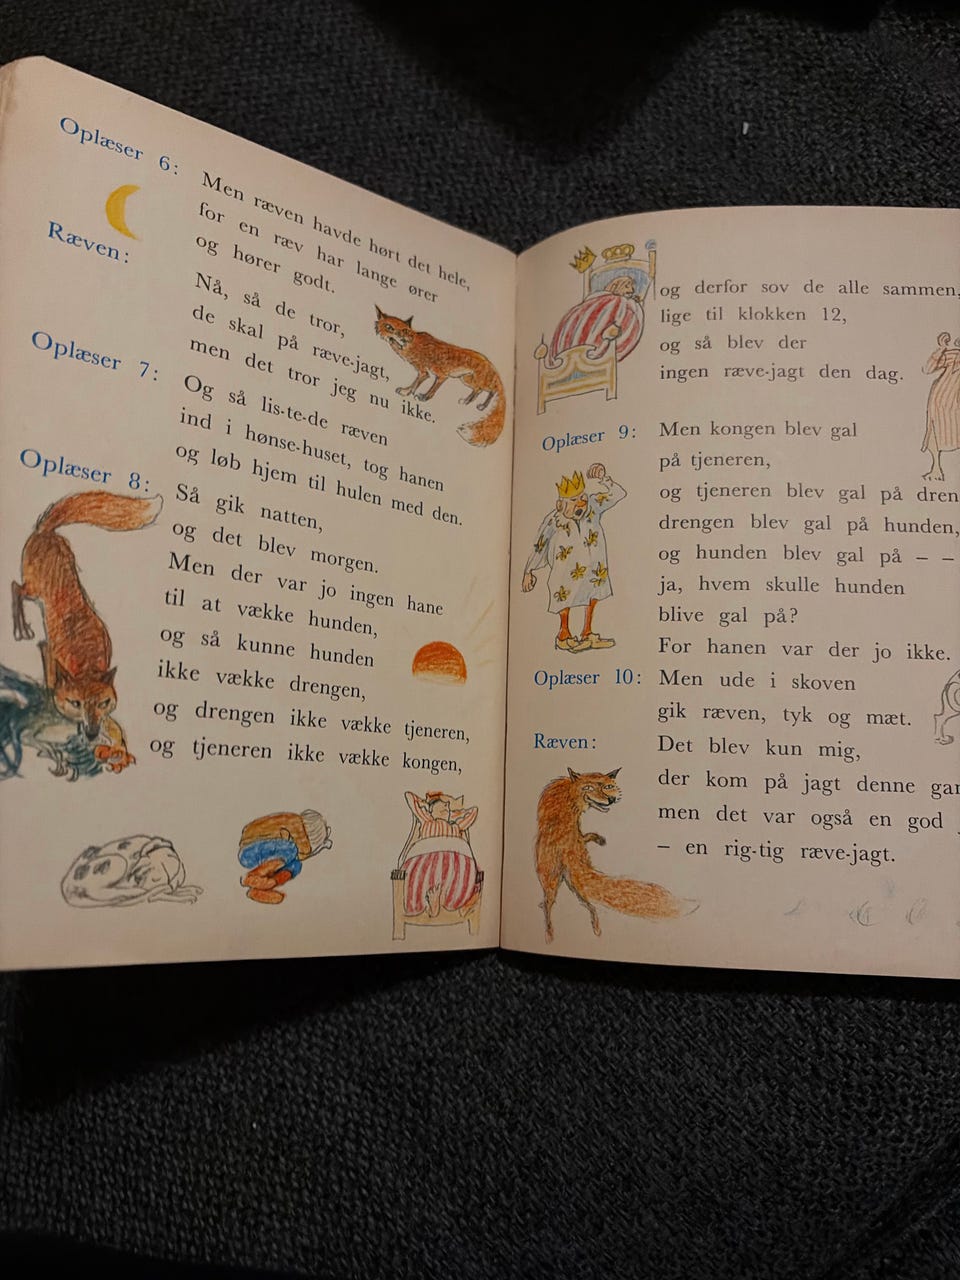 Oplæser 6: Men ræven havde hørt det hele,
for en ræv har lange ører
og hører godt.
Ræven: Nå, så de tror,
de skal på ræve-jagt,
men det tror jeg nu ikke.
Oplæser 7: Og så lis-te-de ræven
ind i hønse-huset, tog hanen
og løb hjem til hulen med den.
Oplæser 8: Så gik natten,
og det blev morgen.
Men der var jo ingen hane
til at vække hunden,
og så kunne hunden
ikke vække drengen,
og drengen ikke vække tjeneren,
og tjeneren ikke vække kongen,
og derfor sov de alle sammen,
lige til klokken 12,
og så blev der
ingen ræve-jagt den dag.
Oplæser 9: Men kongen blev gal
på tjeneren,
og tjeneren blev gal på
drengen blev gal på hunden,
og hunden blev gal på – –
ja, hvem skulle hunden
blive gal på?
For hanen var der jo ikke.
Oplæser 10: Men ude i skoven
gik ræven, tyk og mæt.
Ræven: Det blev kun mig,
der kom på jagt denne
men det var også en god
– en rig-tig ræve-jagt.